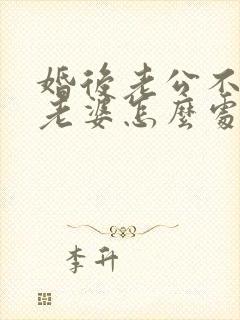 婚後老公不
老婆怎麼處
李升